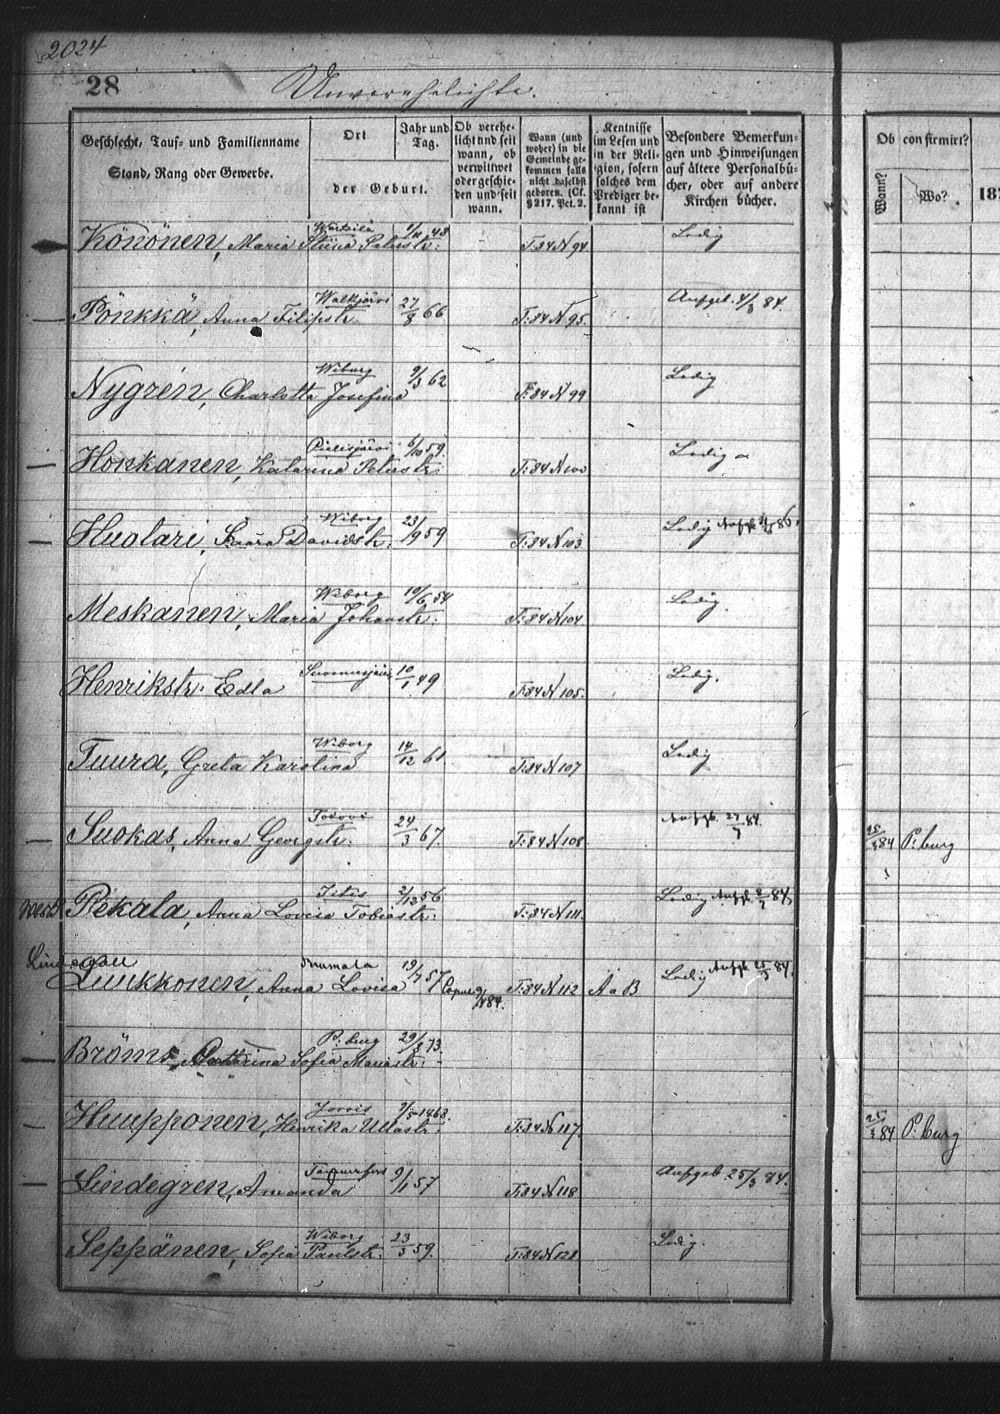 2024
28 Unverehelichte.
Geschlecht, Tauf- und Familienname
Stand, Rang oder Gewerbe.
Ort
der Geburt.
Jahr und
Tag.
Ob verehe-
licht und seit
wann, ob
verwittwet
oder geschie-
den und seit
wann.
Wann (und
woher) in die
Gemeinde ge-
kommen falls
nicht daselbst
geboren. (Cf.
§ 217. Pct. 2.
Kentnisse
im Lesen und
in der Reli-
gion, sofern
solches dem
Prediger be-
kannt ist
Besondere Bemerkun-
gen und Hinweisungen
auf ältere Personalbü-
cher, oder auf andere
Kirchen bücher.
Ob confirmirt?
Wann?
Wo?
187
Könönen, Maria Stiina Peterstr: 48 T:84 N 94 Ledig
Pönkkä, Anna Filipstr. Walkjärvi 27/8 66 T:84 N 95. Aufgeb. 4/3 84.
Nygrén, Charlotta Josefina Wiburg 9/3 62 T:84 N 99 Ledig
Honkanen, Katarina Peterstr: Pielisjärvi 6/10 59. T:84 N 100 Ledig
Huotari, Saara Davidstr: Wiborg 23/9 59 T:84 N 103 Ledig
Meskanen, Maria Johanstr: Wiborg 19/6 54 T:84 N 104 Ledig.
Henrikstr: Edla Suomusjärvi 10/1 49 T:84 N 105. Ledig.
Tuura, Greta Karolina Wiborg 14/12 61 T:84 N 107 Ledig
Suokas, Anna Georgstr: 24/3 67. T:84 N 108 Aufgb. 84. 25/3 84 P:burg
Pekala, Anna Lovisa Tobiastr: Itis 2/12 56 T:84 N 111. Ledig Aufgb. 84
Luukkonen, Anna Lovisa Rumala 19/7 57 84. T:84 N 112 A a B Ledig Aufgb. 25/3 84.
Bröms, Sofia Mariastr: P:burg 29/3 73.
Huupponen, Henrika Ullastr: Jorois 9/5 1863. T:84 N 117. 25/3 84 P:burg
Lindegren, Amanda Tammerfors 9/1 57 T:84 N 118 Aufgeb. 25/3 84.
Seppänen, Sofia Paulstr: Wiborg 23/3 59. T:84 N 121 Ledig.